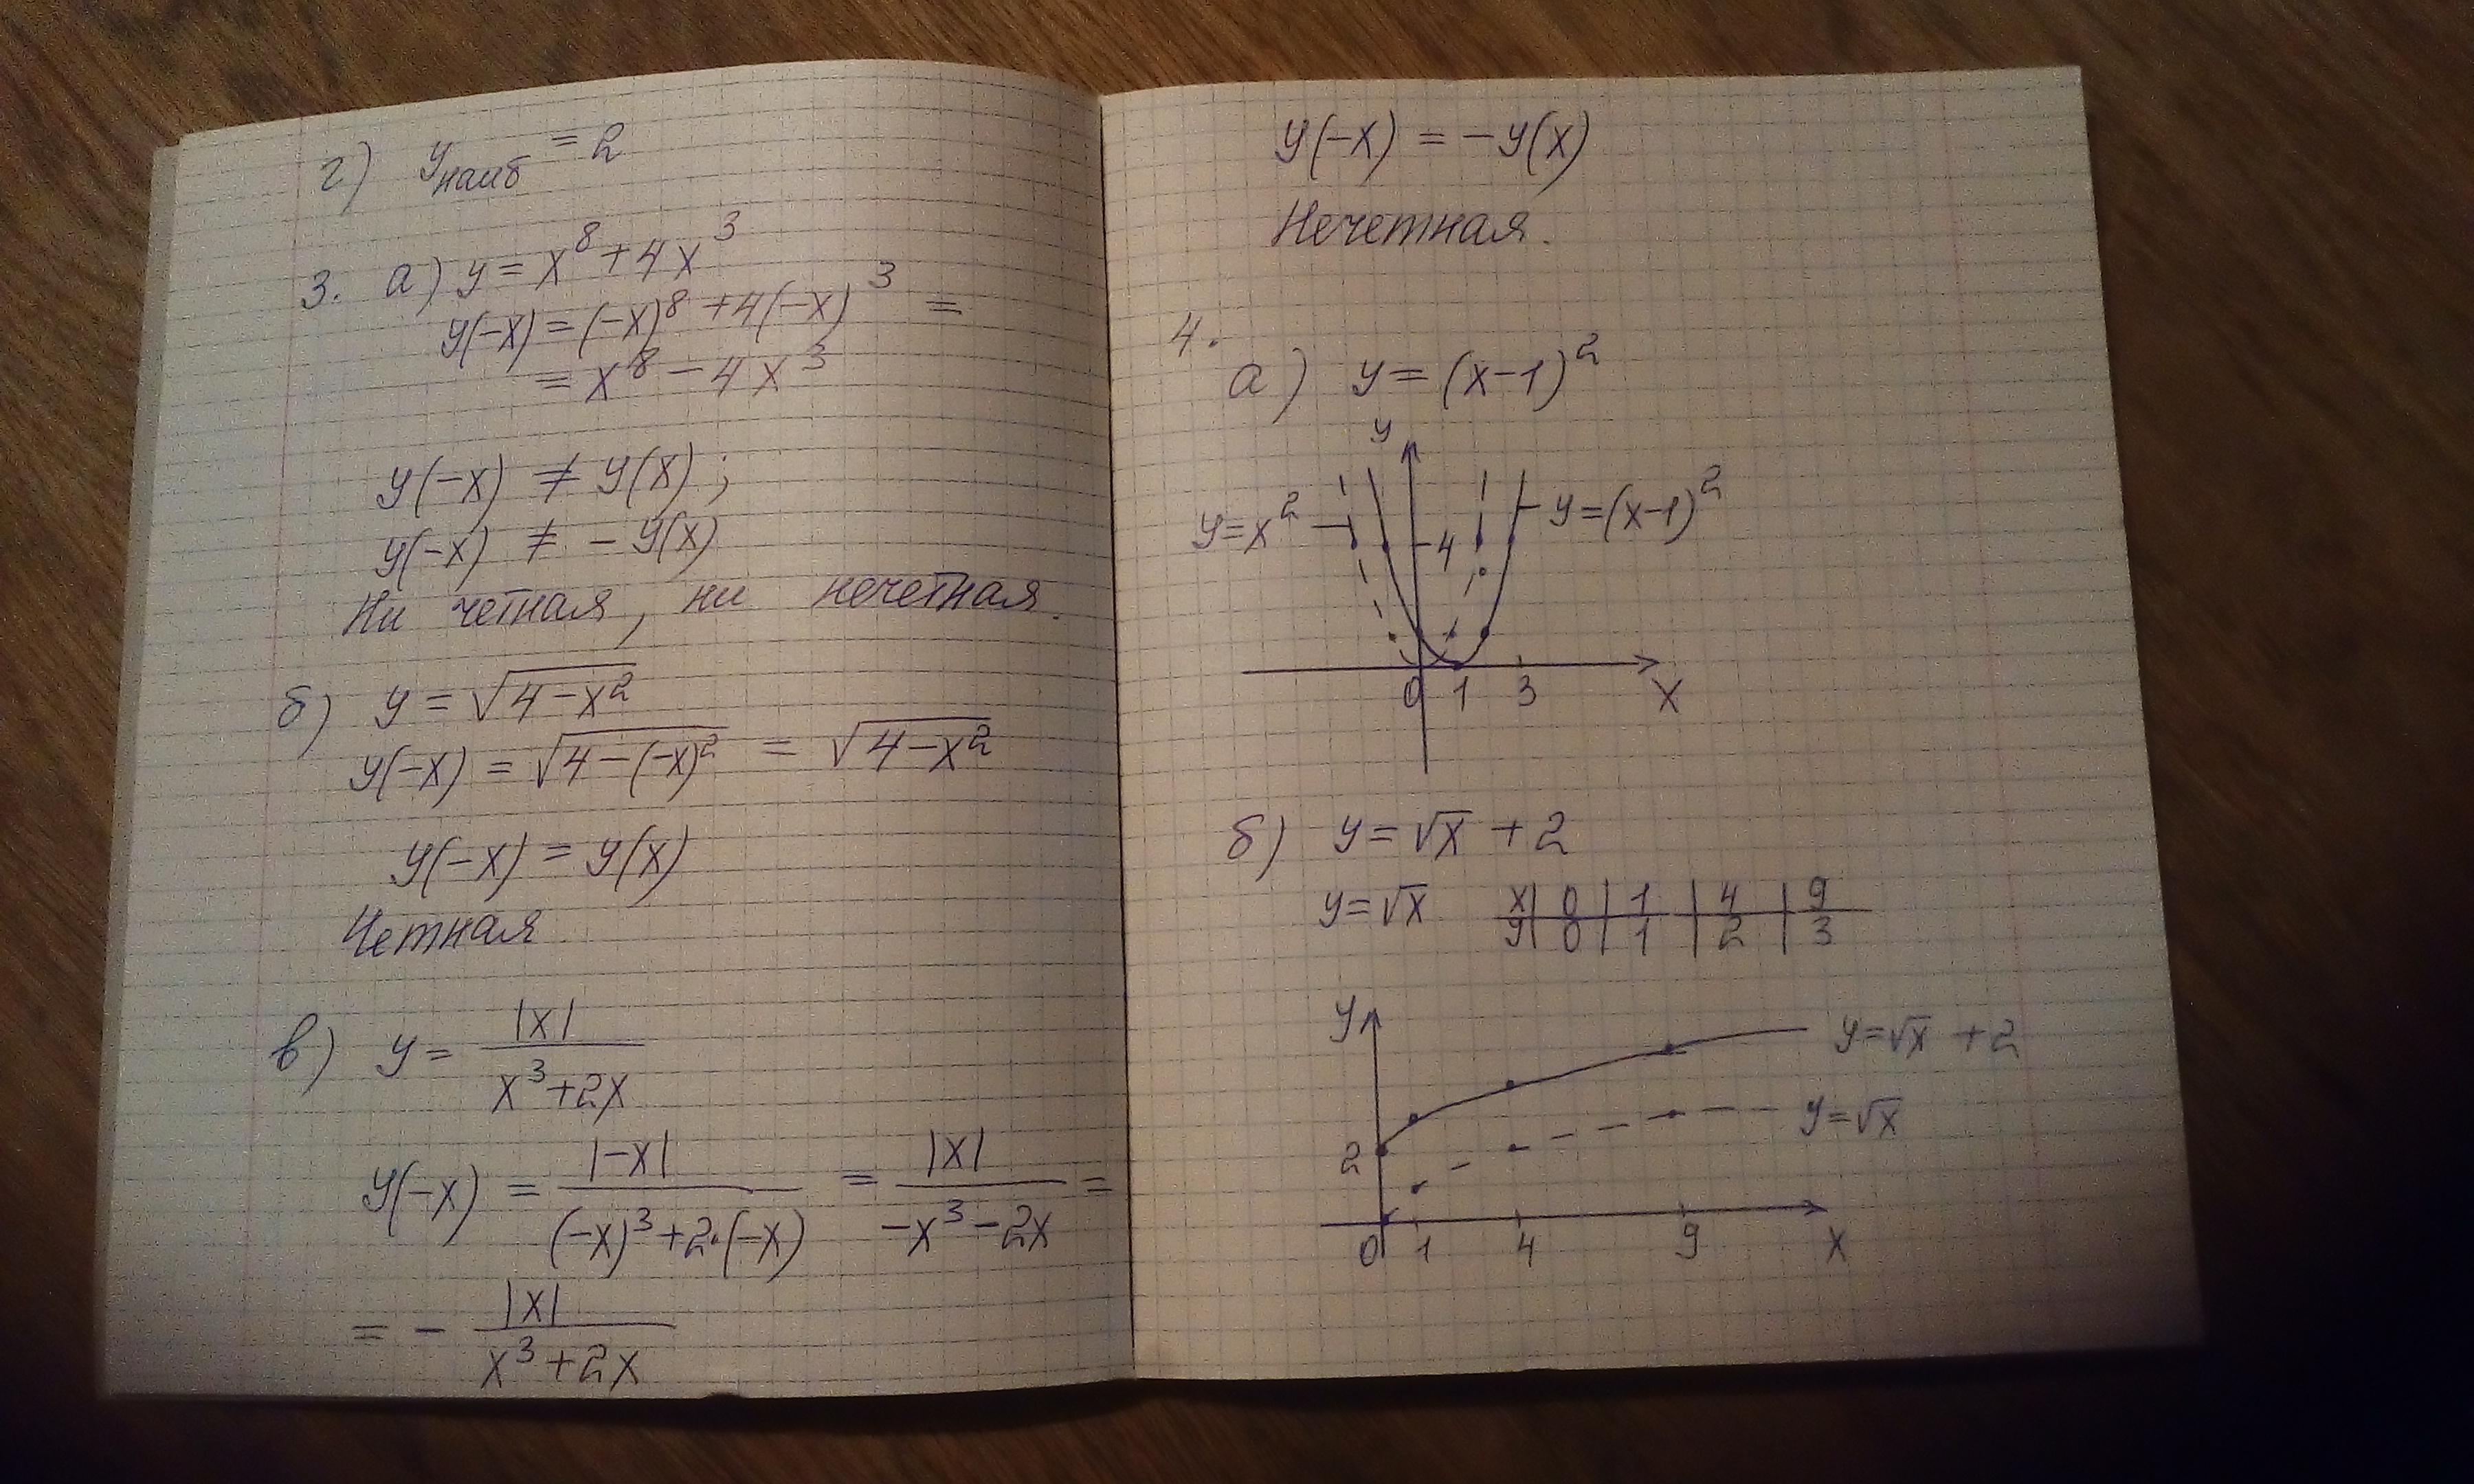 г) yнаиб = 2
3. а) y = x⁸ + 4x³
y(-x) = (-x)⁸ + 4(-x)³ =
= x⁸ - 4x³
y(-x) ≠ y(x);
y(-x) ≠ - y(x)
Ни четная, ни нечетная.
б) y = √(4-x²)
y(-x) = √(4-(-x)²) = √(4-x²)
y(-x) = y(x)
Четная
в) y = |x|/(x³+2x)
y(-x) = |-x|/((-x)³+2·(-x)) = |x|/(-x³-2x) =
= - |x|/(x³+2x)
y(-x) = -y(x)
Нечетная.
4.
а) y = (x-1)²
y
y=x²
4
y=(x-1)²
0 1 3 x
б) y = √x + 2
y=√x
x | 0 | 1 | 4 | 9
y | 0 | 1 | 2 | 3
y
y=√x + 2
y=√x
2
0 1 4 9 x